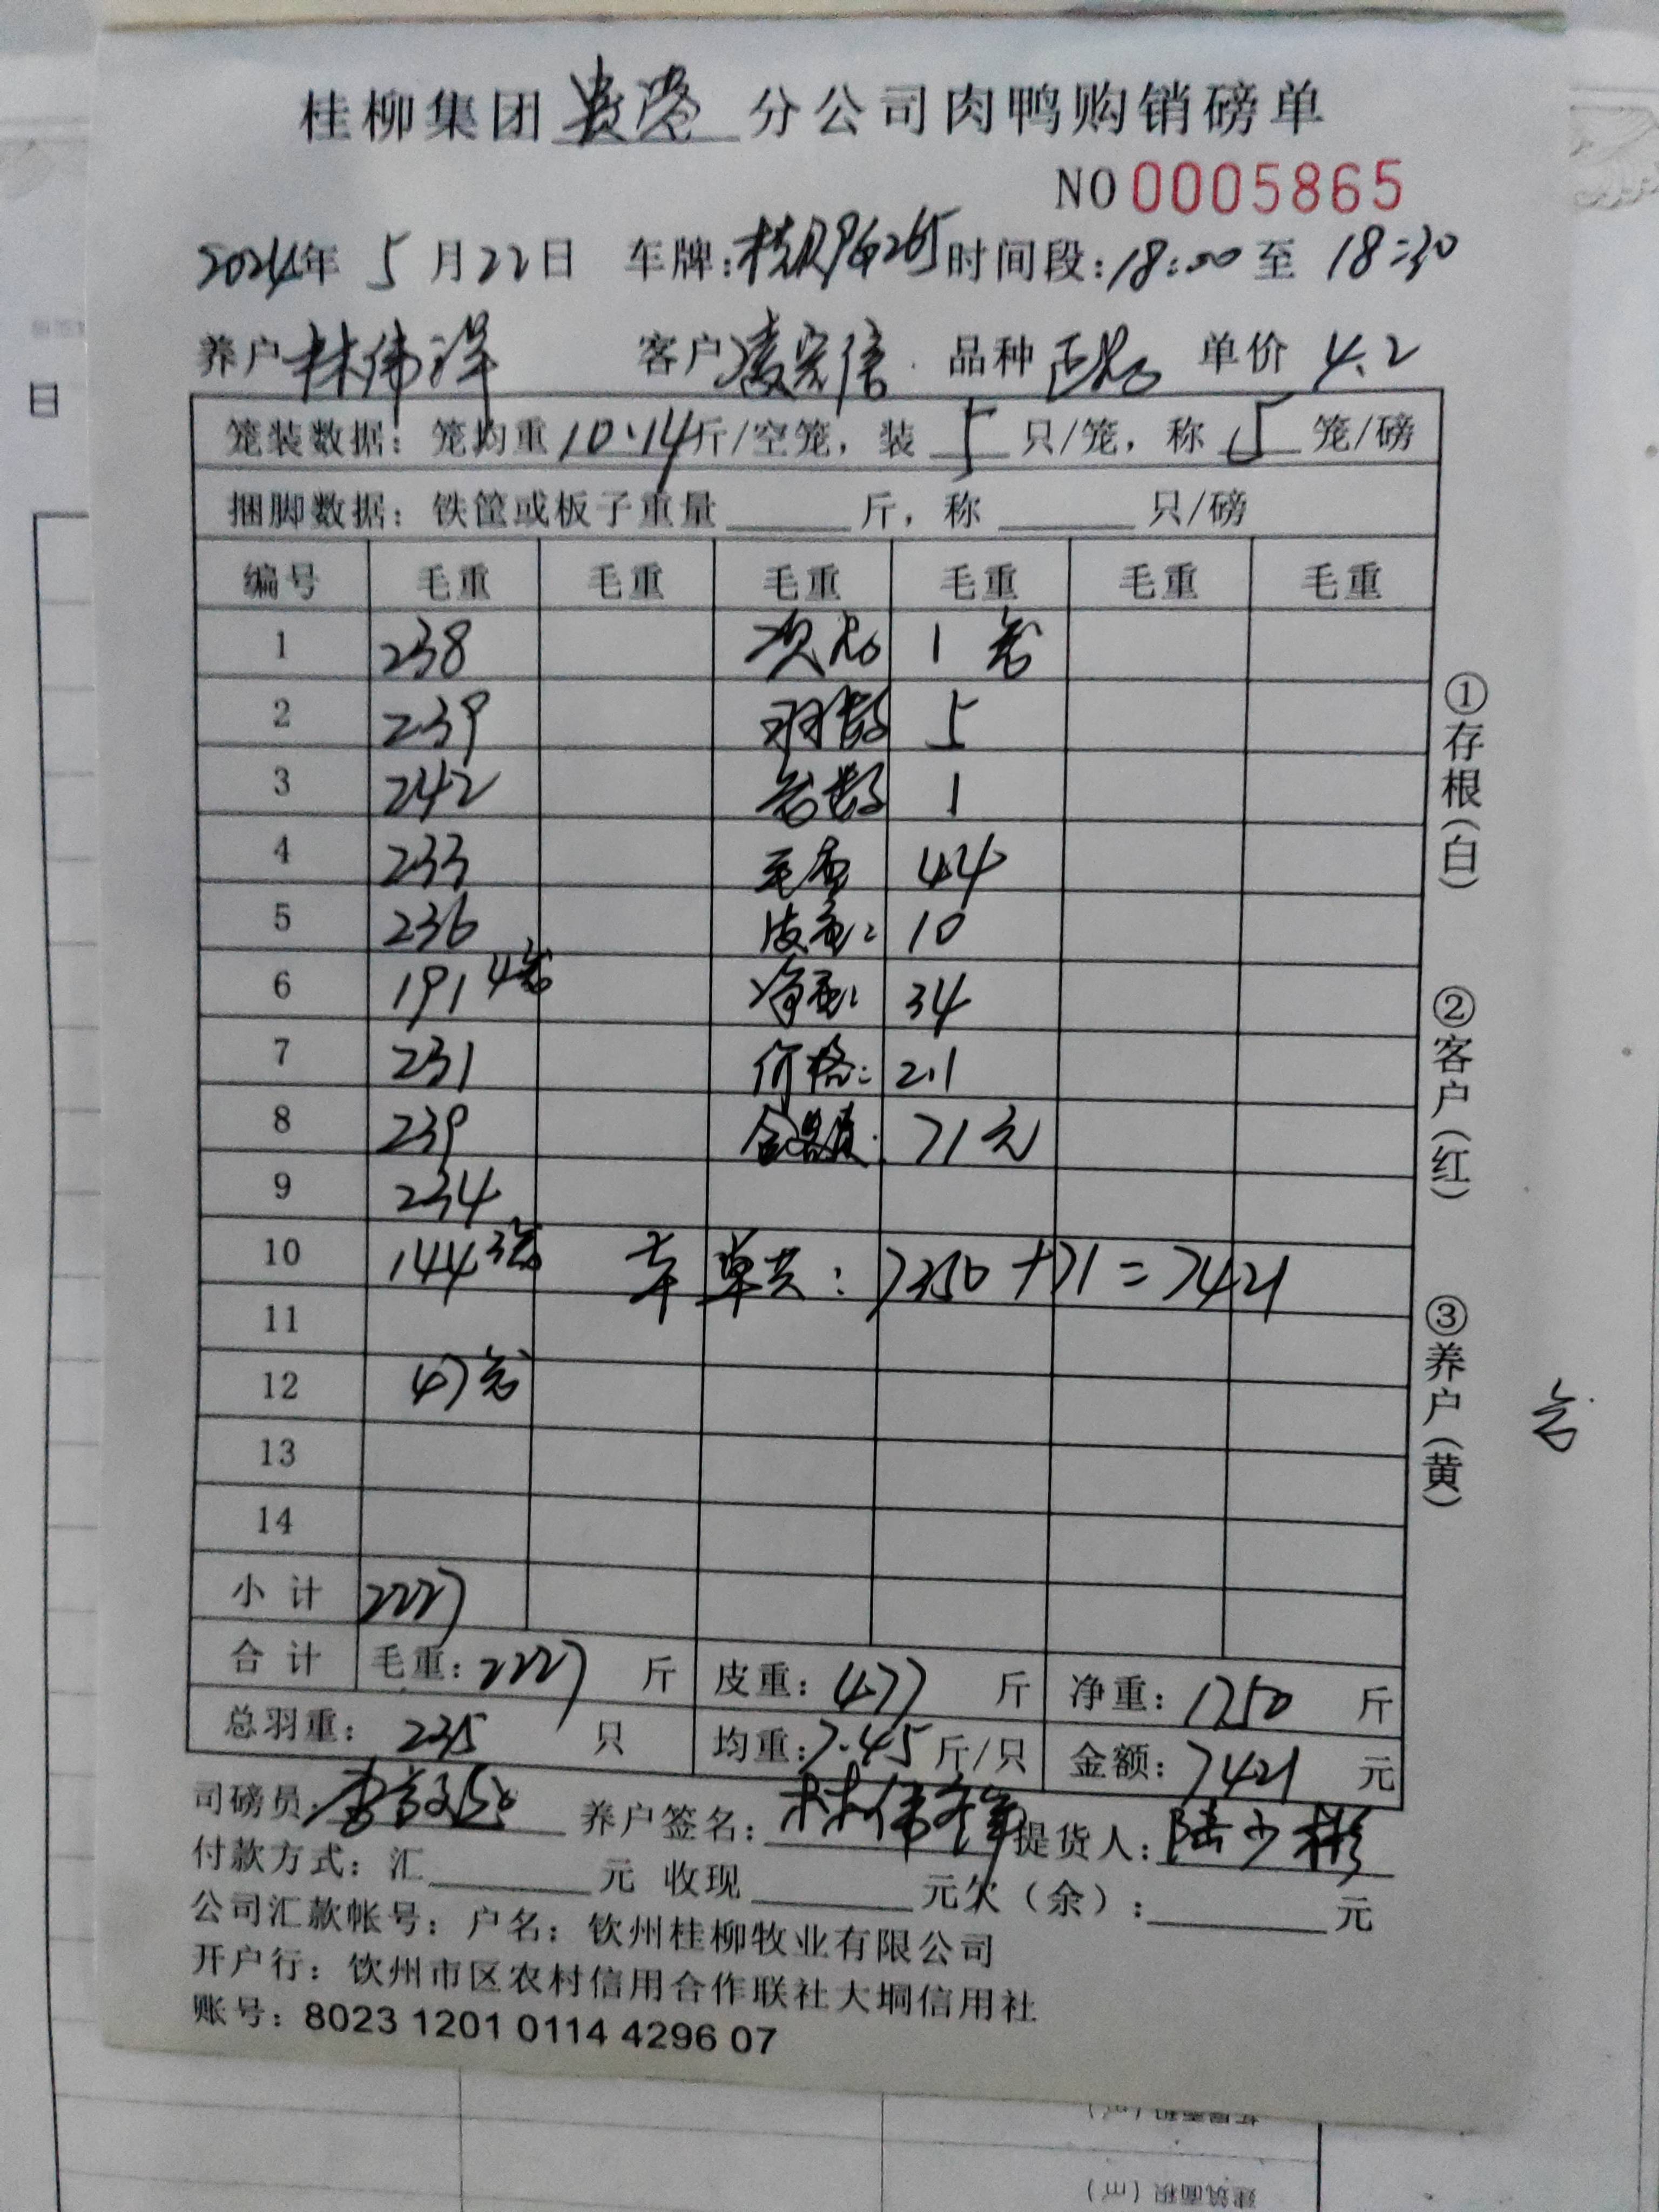 桂柳集团贵港分公司肉鸭购销磅单
NO 0005865
2024年 5月22日 车牌:桂R 时间段:18:00至18:30
养户 林伟 客户 凌宏信 品种 正品 单价 4.2
笼装数据：笼均重10.14斤/空笼，装 5 只/笼，称 5 笼/磅
捆脚数据：铁筐或板子重量 斤，称 只/磅
编号 毛重 毛重 毛重 毛重 毛重 毛重
1 238 次品 1 笼
2 239 羽数 5
3 242 笼数 1
4 233 毛重 44
5 236 皮重: 10
6 191 4笼 净重: 34
7 231 价格: 2.1
8 239 金额: 71元
9 234
10 144 3笼 本单共: 7350+71=7421
11
12 47笼
13
14
小计 2227
合计 毛重:2227 斤 皮重:477 斤 净重:1750 斤
总羽重: 235 只 均重:7.45斤/只 金额:7421 元
司磅员: 李 养户签名: 林伟 提货人:陆少彬
付款方式：汇 元 收现 元欠（余）: 元
公司汇款帐号：户名：钦州桂柳牧业有限公司
开户行：钦州市区农村信用合作联社大垌信用社
账号：8023 1201 0114 4296 07
①存根(白)
②客户(红)
③养户(黄)
日
笼
建筑面积（㎡）